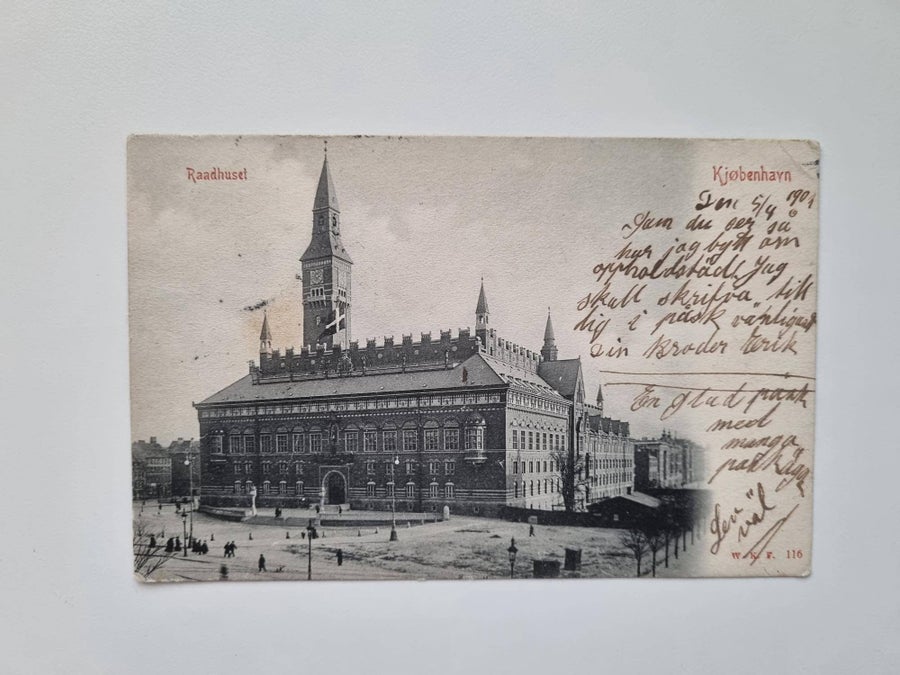 Raadhuset
Kjøbenhavn
Den 5/4 190
Som du ser så
har jag bytt om
oppholdstäd. Jag
skall skrifva till
dig i påsk vänligast
Din broder Erik
En glad påsk
med
många
påskägg
Lev
väl
W. K. F. 116